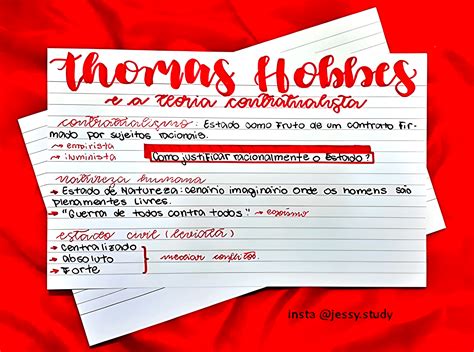 Thomas Hobbes
e a teoria contratualista
contratualismo: Estado como fruto de um contrato fir-
mado por sujeitos racionais.
→ empirista
→ iluminista
Como justificar racionalmente o Estado?
natureza humana
• Estado de Natureza: cenário imaginário onde os homens são
plenamentes livres.
• "Guerra de todos contra todos" → egoísmo
estado civil (leviatã)
→ centralizado
→ absoluto
→ Forte
mediar conflitos.
insta @jessy.study